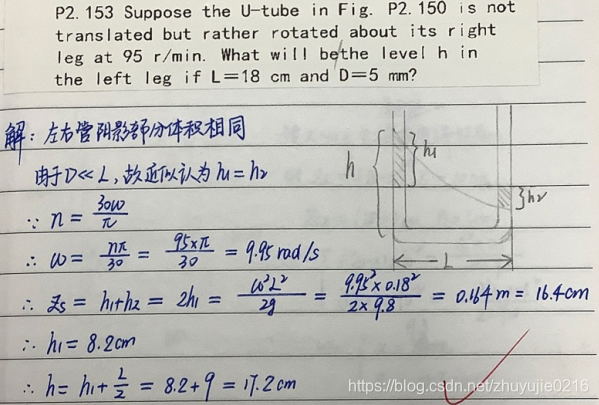 P2. 153 Suppose the U-tube in Fig. P2. 150 is not
translated but rather rotated about its right
leg at 95 r/min. What will be the level h in
the left leg if L=18 cm and D=5 mm?
解：左右管阴影部分体积相同
由于D≪L，故近似认为h₁=h₂
∵ n = 30ω/π
∴ ω = nπ/30 = 95×π/30 = 9.95 rad/s
∴ Zs = h₁+h₂ = 2h₁ = ω²L²/2g = 9.95²×0.18²/2×9.8 = 0.164 m = 16.4cm
∴ h₁ = 8.2cm
∴ h = h₁ + L/2 = 8.2+9 = 17.2 cm
h
h₁
h₂
L
https://blog.csdn.net/zhuyujie0216